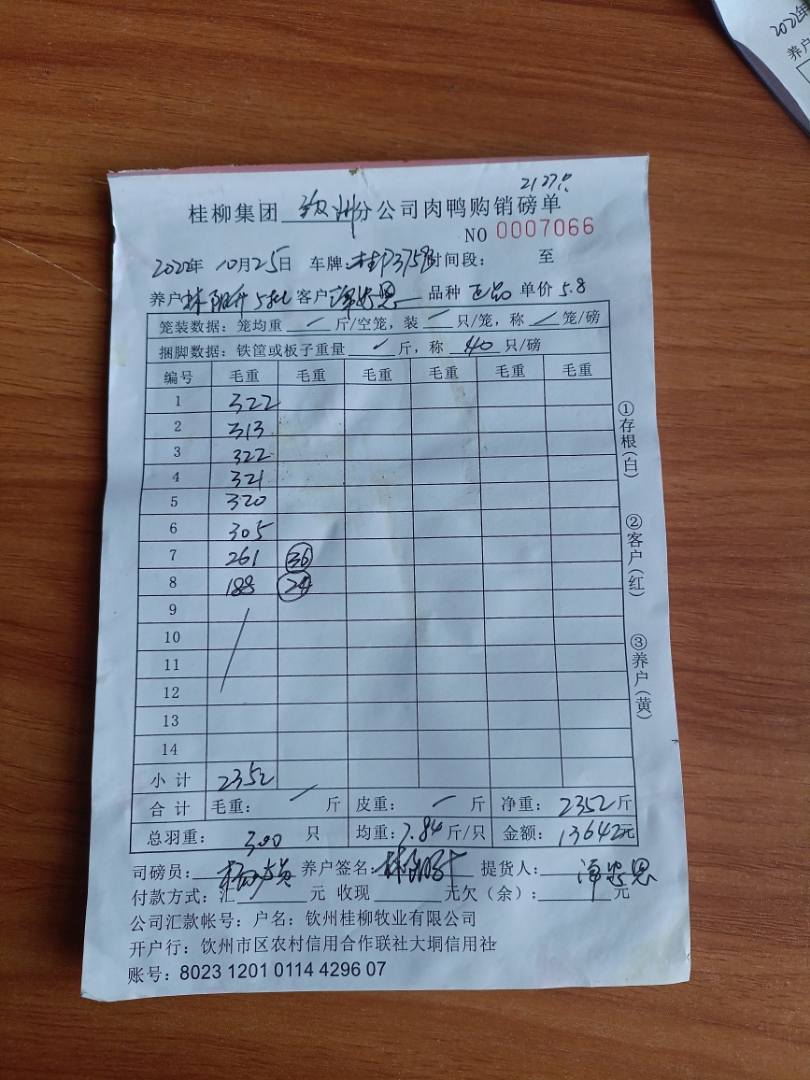 2127只
桂柳集团 钦州 分公司肉鸭购销磅单
NO 0007066
2022年 10月25日 车牌: 时间段: 至
养户 5批 客户 品种 正品 单价 5.8
笼装数据: 笼均重 / 斤/空笼, 装 / 只/笼, 称 / 笼/磅
捆脚数据: 铁筐或板子重量 / 斤, 称 40 只/磅
编号 毛重 毛重 毛重 毛重 毛重 毛重
1 322
2 313
3 322
4 321
5 320
6 305
7 261 36
8 188 24
9
10
11
12
13
14
小计 2352
合计 毛重: / 斤 皮重: / 斤 净重: 2352斤
总羽重: 300 只 均重: 7.84斤/只 金额: 13642元
司磅员: 养户签名: 提货人:
付款方式: 汇 元 收现 元欠(余): 元
公司汇款帐号: 户名: 钦州桂柳牧业有限公司
开户行: 钦州市区农村信用合作联社大垌信用社
账号: 8023 1201 0114 4296 07
①存根(白)
②客户(红)
③养户(黄)
2022年
养户